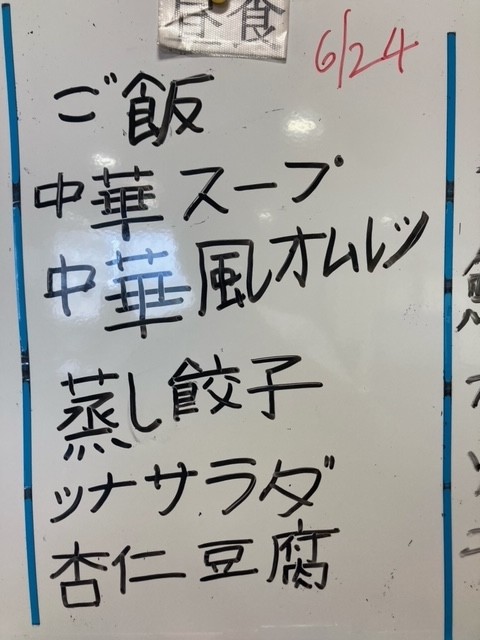 昼食
6/24
ご飯
中華スープ
中華風オムレツ
蒸し餃子
ツナサラダ
杏仁豆腐